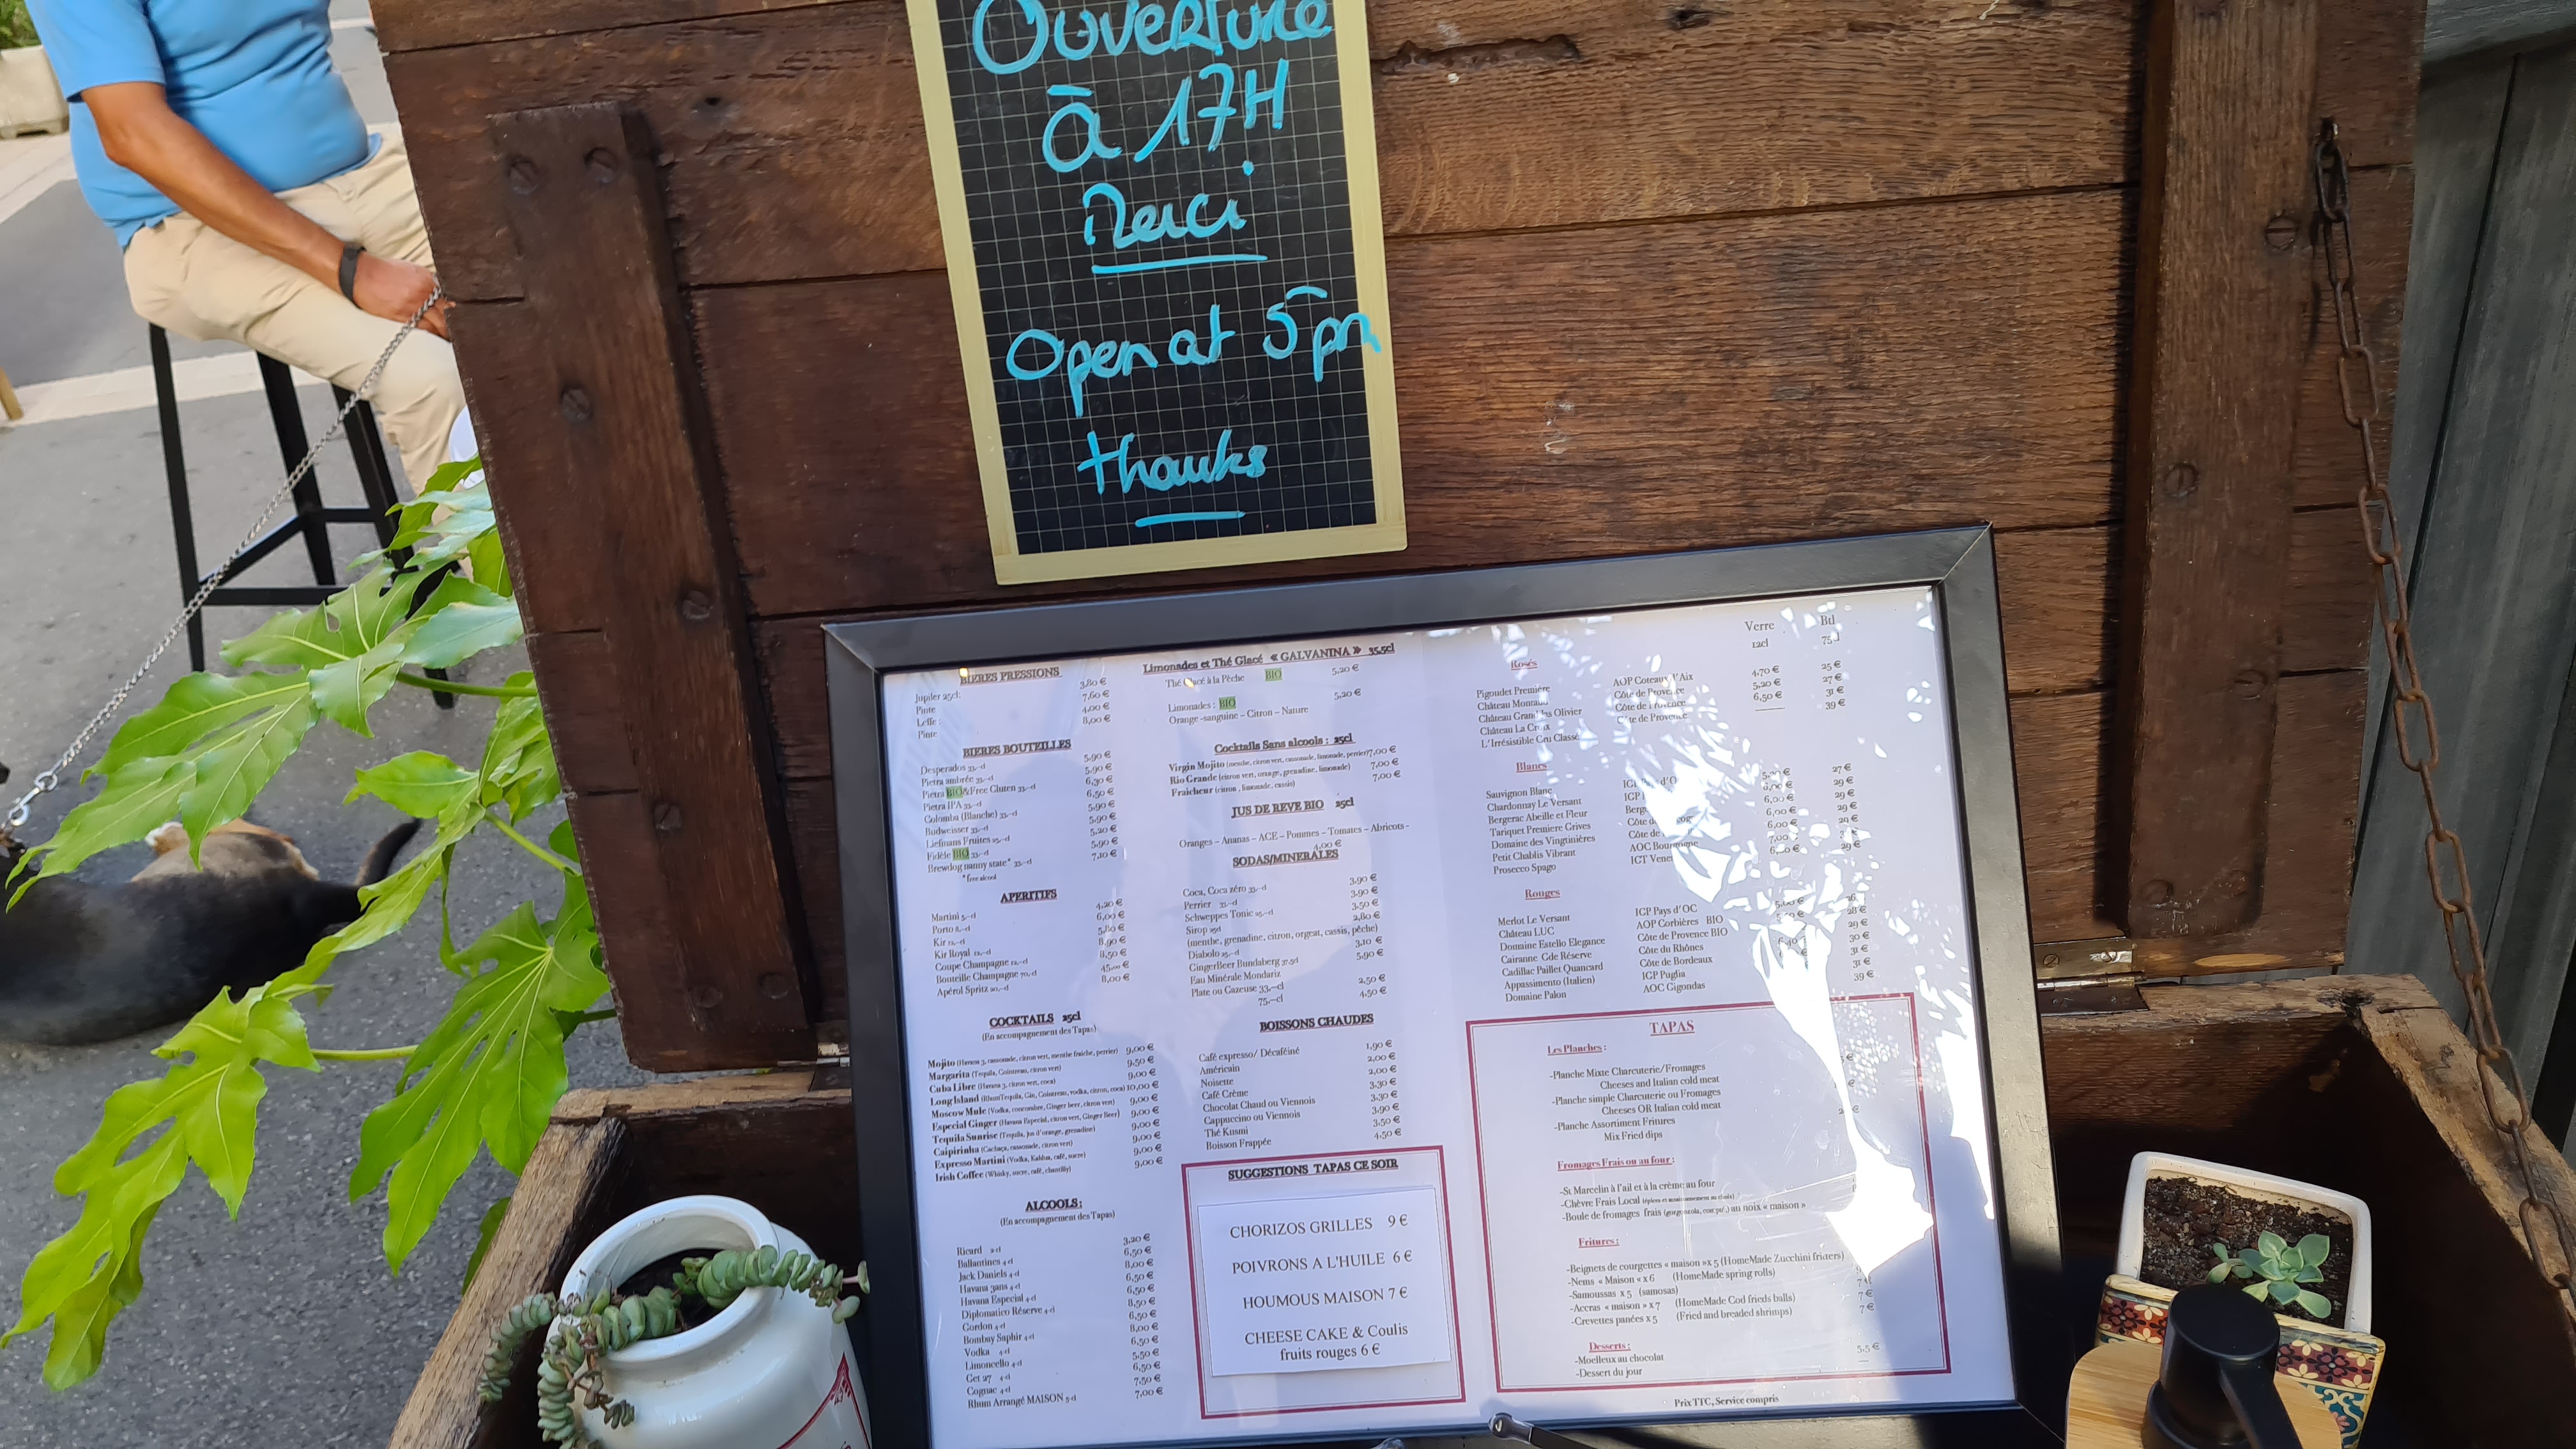 OUVERTURE
à 17H
Merci
Open at 5pm
thanks
BIERES PRESSIONS
Jupiler 25cl: 3,80 €
Pinte 7,60 €
Leffe : 4,00 €
Pinte 8,00 €
BIERES BOUTEILLES
Desperados 33-cl 5,90 €
Pietra ambrée 33-cl 5,90 €
Pietra BIO&Free Gluten 33-cl 6,30 €
Pietra IPA 33-cl 6,50 €
Colomba (Blanche) 33-cl 5,90 €
Budweisser 33-cl 5,90 €
Liefmans Fruites 25-cl 5,20 €
Fidèle BIO 33-cl 5,90 €
Brewdog nanny state* 33-cl 7,10 €
*free alcool
APERITIFS
Martini 5-cl 4,20 €
Porto 8-cl 6,00 €
Kir 12-cl 5,80 €
Kir Royal 12-cl 8,90 €
Coupe Champagne 12-cl 8,50 €
Bouteille Champagne 70-cl 45,00 €
Apérol Spritz 20-cl 8,00 €
COCKTAILS 25cl
(En accompagnement des Tapas)
Mojito (Havana 3, cassonade, citron vert, menthe fraiche, perrier) 9,00 €
Margarita (Tequila, Cointreau, citron vert) 9,50 €
Cuba Libre (Havana 3, citron vert, coca) 9,00 €
Long Island (Rhum Tequila, Gin, Cointreau, vodka, citron, coca) 10,00 €
Moscow Mule (Vodka, concombre, Ginger beer, citron vert) 9,00 €
Especial Ginger (Havana Especial, citron vert, Ginger Beer) 9,00 €
Tequila Sunrise (Tequila, jus d'orange, grenadine) 9,00 €
Caipirinha (Cachaça, cassonade, citron vert) 9,00 €
Expresso Martini (Vodka, Kahlua, café, sucre) 9,00 €
Irish Coffee (Whisky, sucre, café, chantilly) 9,00 €
ALCOOLS :
(En accompagnement des Tapas)
Ricard 2cl 3,20 €
Ballantines 4-cl 6,50 €
Jack Daniels 4-cl 8,00 €
Havana 3ans 4-cl 6,50 €
Havana Especial 4-cl 6,50 €
Diplomatico Réserve 4-cl 8,50 €
Gordon 4-cl 6,50 €
Bombay Saphir 4-cl 8,00 €
Vodka 4-cl 6,50 €
Limoncello 4-cl 5,50 €
Get 27 4-cl 6,50 €
Cognac 4-cl 7,50 €
Rhum Arrangé MAISON 5-cl 7,00 €
Limonades et Thé Glacé « GALVANINA » 35,5cl
Thé Glacé à la Pêche BIO 5,20 €
Limonades : BIO 5,20 €
Orange-sanguine – Citron – Nature
Cocktails Sans alcools : 25cl
Virgin Mojito (menthe, citron vert, cassonade, limonade, perrier) 7,00 €
Rio Grande (citron vert, orange, grenadine, limonade) 7,00 €
Fraîcheur (citron, limonade, cassis) 7,00 €
JUS DE REVE BIO 25cl
Oranges – Ananas – ACE – Pommes – Tomates – Abricots -
4,00 €
SODAS/MINERALES
Coca, Coca zéro 33-cl 3,90 €
Perrier 33-cl 3,90 €
Schweppes Tonic 25-cl 3,50 €
Sirop 25cl 2,80 €
(menthe, grenadine, citron, orgeat, cassis, pêche)
Diabolo 25-cl 3,10 €
GingerBeer Bundaberg 37.5cl 5,90 €
Eau Minérale Mondariz
Plate ou Gazeuse 33-cl 2,50 €
75-cl 4,50 €
BOISSONS CHAUDES
Café expresso/ Décaféiné 1,90 €
Américain 2,00 €
Noisette 2,00 €
Café Crème 3,30 €
Chocolat Chaud ou Viennois 3,30 €
Cappuccino ou Viennois 3,90 €
Thé Kusmi 3,50 €
Boisson Frappée 4,50 €
SUGGESTIONS TAPAS CE SOIR
CHORIZOS GRILLES 9 €
POIVRONS A L'HUILE 6 €
HOUMOUS MAISON 7 €
CHEESE CAKE & Coulis
fruits rouges 6 €
Verre Btl
12cl 75cl
Rosés
Pigoudet Première AOP Coteaux d'Aix 4,70 € 25 €
Château Montaud Côte de Provence 5,20 € 27 €
Château Grand Olivier Côte de Provence 6,50 € 31 €
Château La Croix Côte de Provence 39 €
L'Irrésistible Cru Classé
Blancs
Sauvignon Blanc 27 €
Chardonnay Le Versant IGP 29 €
Bergerac Abeille et Fleur 6,00 29 €
Tariquet Premiere Grives Côte de 6,00 € 29 €
Domaine des Vingtinières Côte de 6,00 € 29 €
Petit Chablis Vibrant AOC Bourgogne 7,00
Prosecco Spago 29 €
Rouges
Merlot Le Versant IGP Pays d'OC 26
Château LUC AOP Corbières BIO 28 €
Domaine Estello Elegance Côte de Provence BIO 29 €
Cairanne Gde Réserve Côte du Rhônes 30 €
Cadillac Paillet Quancard Côte de Bordeaux 31 €
Appassimento (Italien) IGP Puglia 31 €
Domaine Palon AOC Gigondas 39 €
TAPAS
Les Planches :
-Planche Mixte Charcuterie/Fromages
Cheeses and Italian cold meat
-Planche simple Charcuterie ou Fromages
Cheeses OR Italian cold meat
-Planche Assortiment Fritures
Mix Fried dips
Fromages Frais ou au four :
-St Marcelin à l'ail et à la crème au four
-Chèvre Frais Local
-Boule de fromages frais au noix « maison »
Fritures :
-Beignets de courgettes « maison »x 5 (HomeMade Zucchini friters)
-Nems « Maison « x 6 (HomeMade spring rolls)
-Samoussas x 5 (samosas) 7 €
-Accras « maison » x 7 (HomeMade Cod frieds balls) 7 €
-Crevettes panées x 5 (Fried and breaded shrimps) 7 €
Desserts :
-Moelleux au chocolat 5,5 €
-Dessert du jour
Prix TTC, Service compris